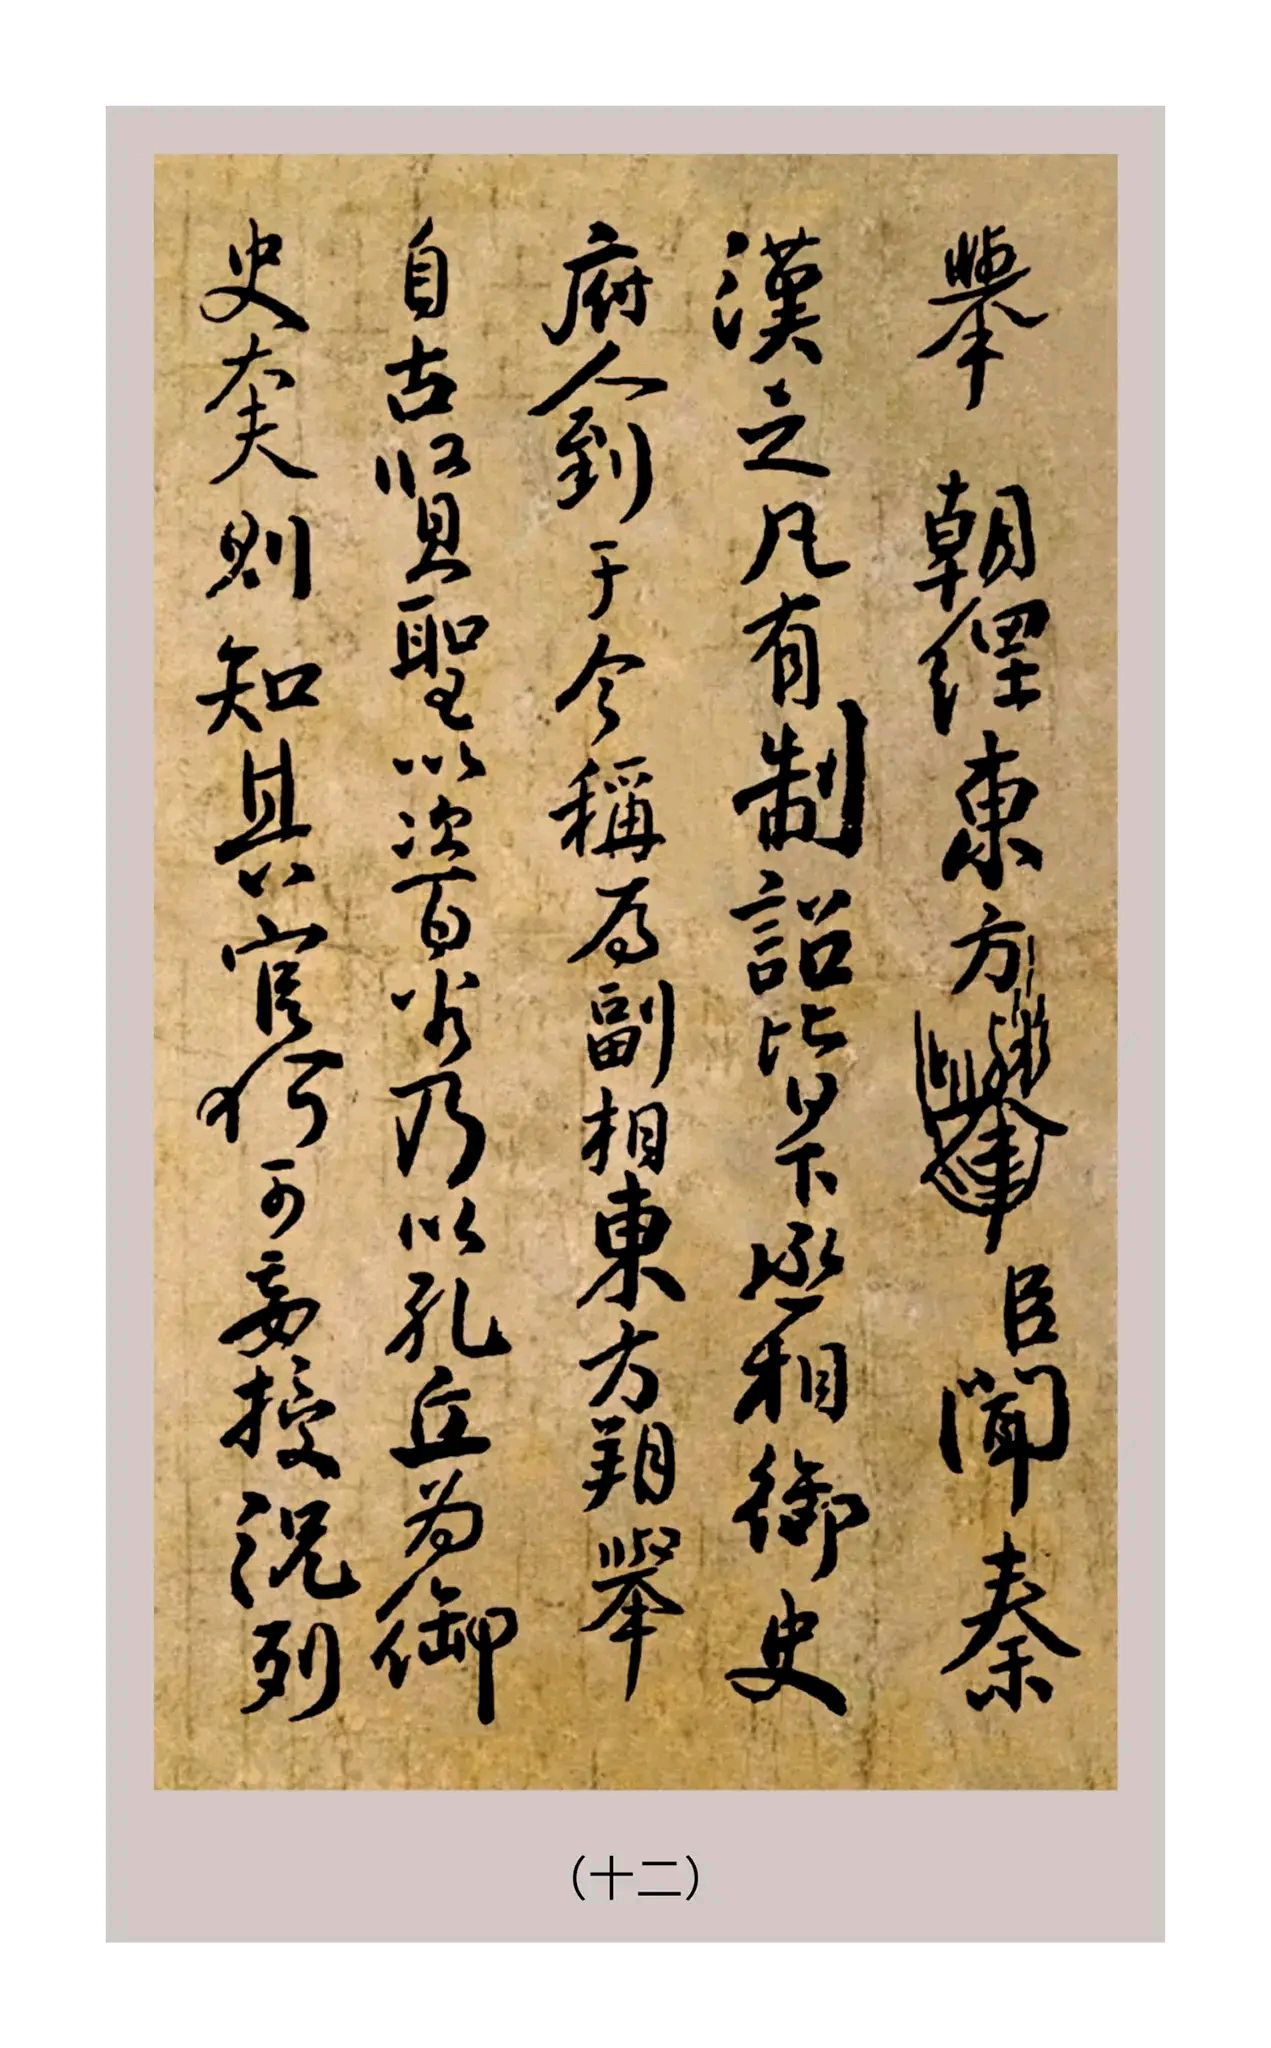 舉 朝東方臣聞秦
漢之凡有制詔皆下丞相御史
府人到于今稱為副相東方朔舉
自古賢聖以次百乃以孔丘為御
史大夫則知其官何可妄授況列
（十二）